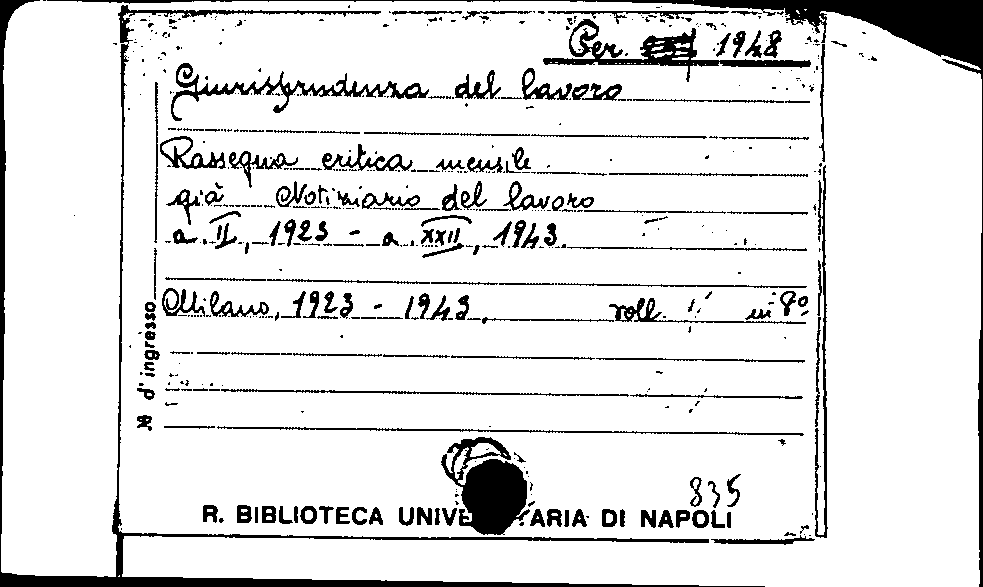 Per. 1948
Giurisprudenza del lavoro
Rassegna critica mensile
già Notiziario del lavoro
a. II, 1923 - a. XXII, 1943.
Milano, 1923 - 1943. voll. in 8º
№ d'ingresso
835
R. BIBLIOTECA UNIVE TARIA DI NAPOLI